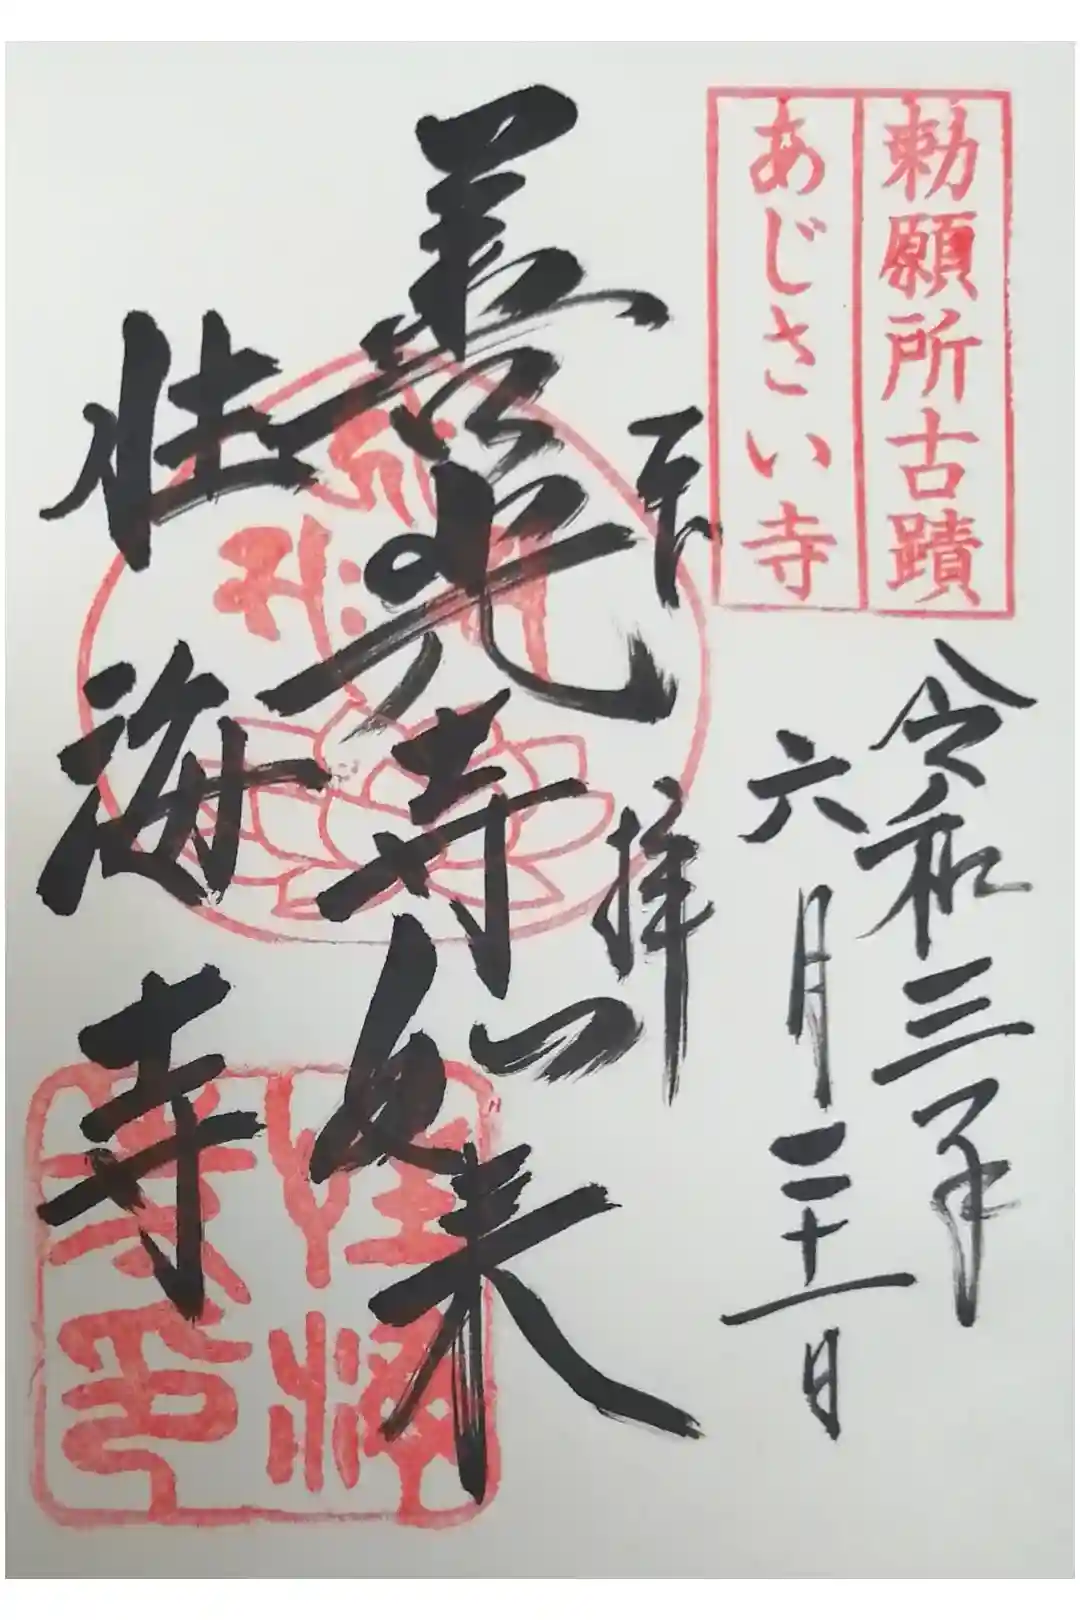 勅願所古蹟
あじさい寺
令和三年
六月二十一日
奉拝
善光寺如来
性海寺
性海寺印